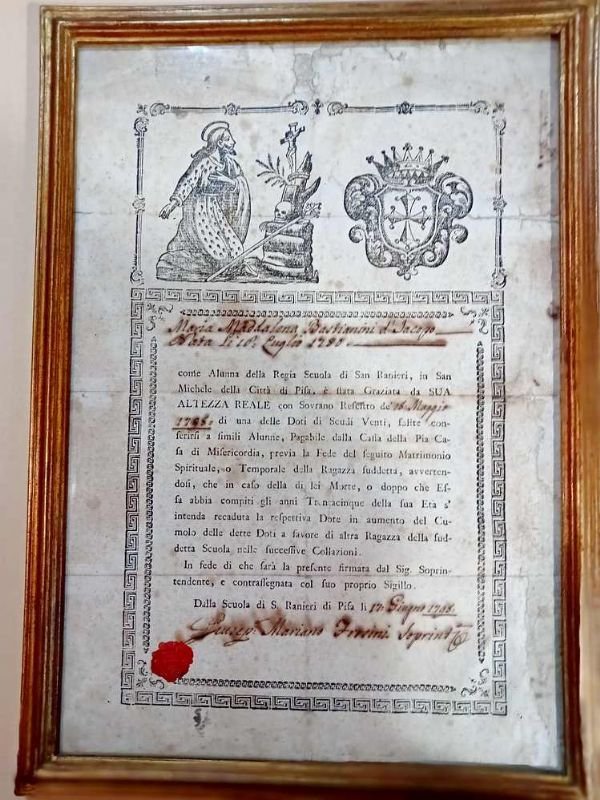 Maria Maddalena Bastianini d'Jacopo
Nata li 10. Luglio 1780
come Alunna della Regia Scuola di San Ranieri, in San
Michele della Città di Pisa, è stata Graziata da SUA
ALTEZZA REALE con Sovrano Rescritto de' 16. Maggio
1798. di una delle Doti di Scudi Venti, solite con-
ferirsi a simili Alunne, Pagabile dalla Cassa della Pia Ca-
sa di Misericordia, previa la Fede del seguito Matrimonio
Spirituale, o Temporale della Ragazza suddetta, avverten-
dosi, che in caso della di lei Morte, o doppo che Es-
sa abbia compiti gli anni Trentacinque della sua Età s'
intenda recaduta la respettiva Dote in aumento del Cu-
molo delle dette Doti a favore di altra Ragazza della sud-
detta Scuola, nelle successive Collazioni.
In fede di che sarà la presente firmata dal Sig. Soprin-
tendente, e contrassegnata col suo proprio Sigillo.
Dalla Scuola di S. Ranieri di Pisa li 17. Giugno 1798.
Mariano Soprint